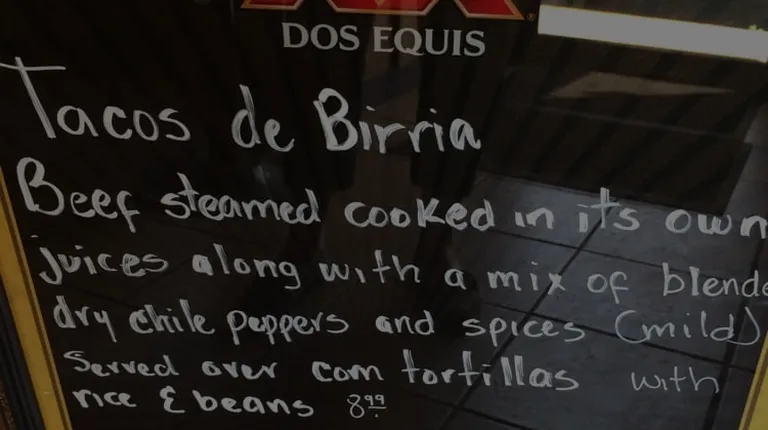 DOS EQUIS
Tacos de Birria
Beef steamed cooked in its own
juices along with a mix of blende
dry chile peppers and spices (mild)
Served over corn tortillas with
rice & beans 8.99